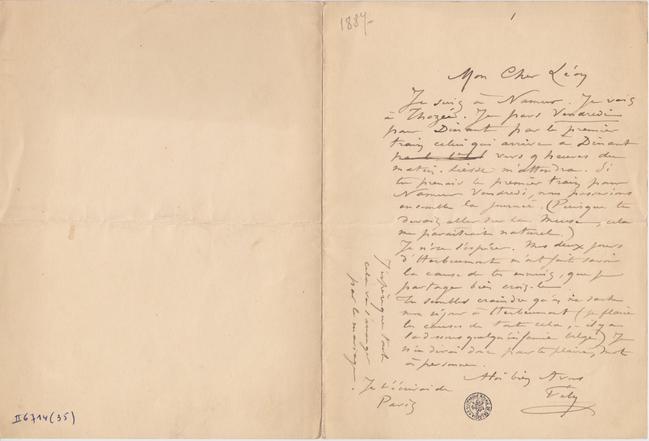 1887-
1
Mon Cher Léon
Je suis à Namur. Je vais
à Thozée. Je pars Vendredi
pour Dinant par le premier
train celui qui arrive à Dinant
vers 9 heures du
matin. Liesse m'attendra. Si
tu prenais le premier train pour
Namur Vendredi, nous passerions
ensemble la journée. (Puisque tu
devais aller sur la Meuse, cela
me paraîtrait naturel.)
Je n'ose l'espérer. Mes deux jours
d'Herbeumont m'ont fait savoir
la cause de tes ennuis, que je
partage bien crois-le
Tu sembles craindre qu'on ne sache
mon séjour à Herbeumont (je
les causes de tout cela, - il y a
là-dessous quelqu'infamie belge) Je
n'en dirai donc pas
à personne.
À toi bien
Fély
J'espère que tout
cela va s'arranger
par le mariage.
Je t'écrirai de
Paris
II 6714 (35)